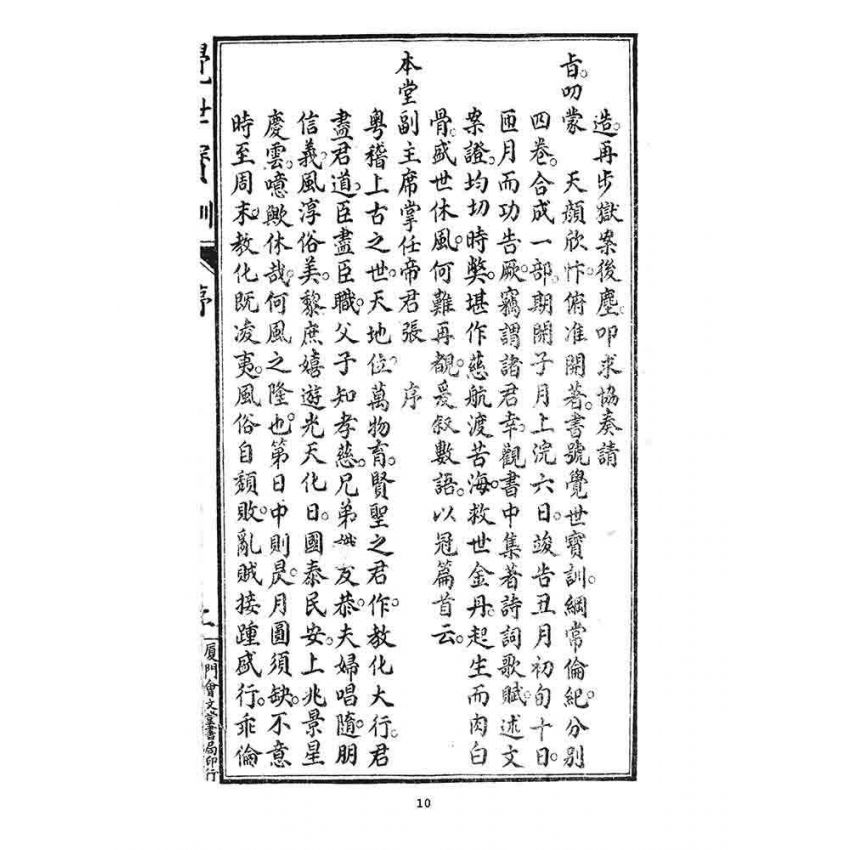 造。再步獄案後塵。叩求協奏請
旨。叨蒙　天顏欣忭。俯准開著。書號覺世寶訓。綱常倫紀。分別
四卷。合成一部。期開子月上浣六日。竣告丑月初旬十日。
匝月而功告厥。竊謂諸君幸觀書中集著詩詞歌賦。述文
案證。均切時獘。堪作慈航渡苦海。救世金丹。起生而肉白
骨。盛世休風。何難再覩。爰叙數語。以冠篇首云。
本堂副主席掌任帝君張　序
粵稽上古之世。天地位。萬物育。賢聖之君作。教化大行。君
盡君道。臣盡臣職。父子知孝慈。兄弟
友恭。夫婦唱隨。朋
信義。風淳俗美。黎庶嬉遊光天化日。國泰民安。上兆景星
慶雲。噫歟休哉。何風之隆也。第日中則昃。月圓須缺。不意
時至周末。教化既凌夷。風俗自頹敗。亂賊接踵盛行。乖倫
覺世寶訓
序
厦門會文堂書局印行
10